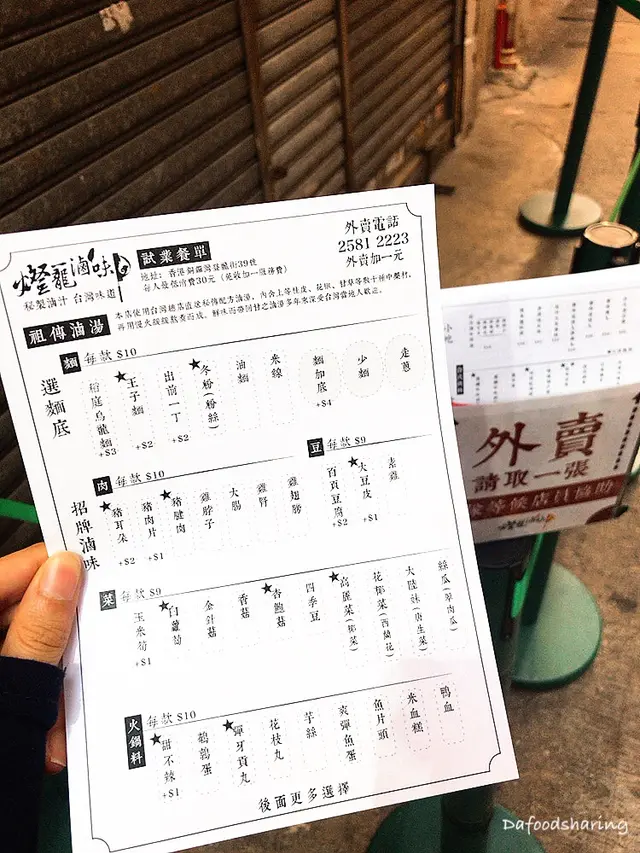 燈籠滷味
秘製滷汁 台灣味道
試業餐單
地址: 香港銅鑼灣登龍街39號
每人最低消費30元 (茲收加一服務費)
外賣電話
2581 2223
外賣加一元
祖傳滷湯
本店使用台灣總店直送秘傳配方滷湯, 內含上等桂皮、花椒、甘草等數十種中藥材,
再用慢火緩緩熬煮而成, 鮮味而帶回甘之滷湯多年來深受台灣當地人歡迎。
選麵底
麵 每款 $10
稻庭烏龍麵 +$3
★王子麵 +$2
出前一丁 +$2
★冬粉(粉絲)
油麵
米線
麵加底 +$4
少麵
走蔥
招牌滷味
肉 每款 $10
★豬耳朵 +$2
豬肉片 +$1
★豬腱肉
雞脖子
大腸
雞腎
雞翅膀
豆 每款 $9
百頁豆腐 +$2
★大豆皮 +$1
素雞
菜 每款 $9
玉米筍 +$1
★白蘿蔔
金針菇
香菇
★杏鮑菇
四季豆
★高麗菜(椰菜)
花椰菜(西蘭花)
大陸妹(唐生菜)
絲瓜(翠肉瓜)
火鍋料 每款 $10
★甜不辣 +$1
鵪鶉蛋
★彈牙貢丸
花枝丸
芋絲
爽彈魚蛋
魚片頭
米血糕
鴨血
後面更多選擇
小吃
外賣
請取一張
等候店員協助
Dafoodsharing